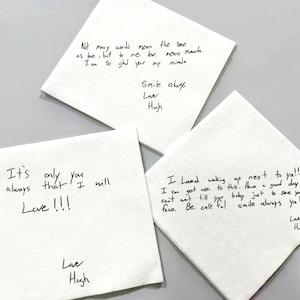 Not many words mean the same
as be, but to me be means
I am so glad your my
Smile always
Love
Hugh
It's only you
always that I will
Love!!!
Love
Hugh
I Loved waking up next to ya!!
I can get use to this. Have a good day
can't wait till to see your
face. Be careful smile always ya!
Lo
Hu